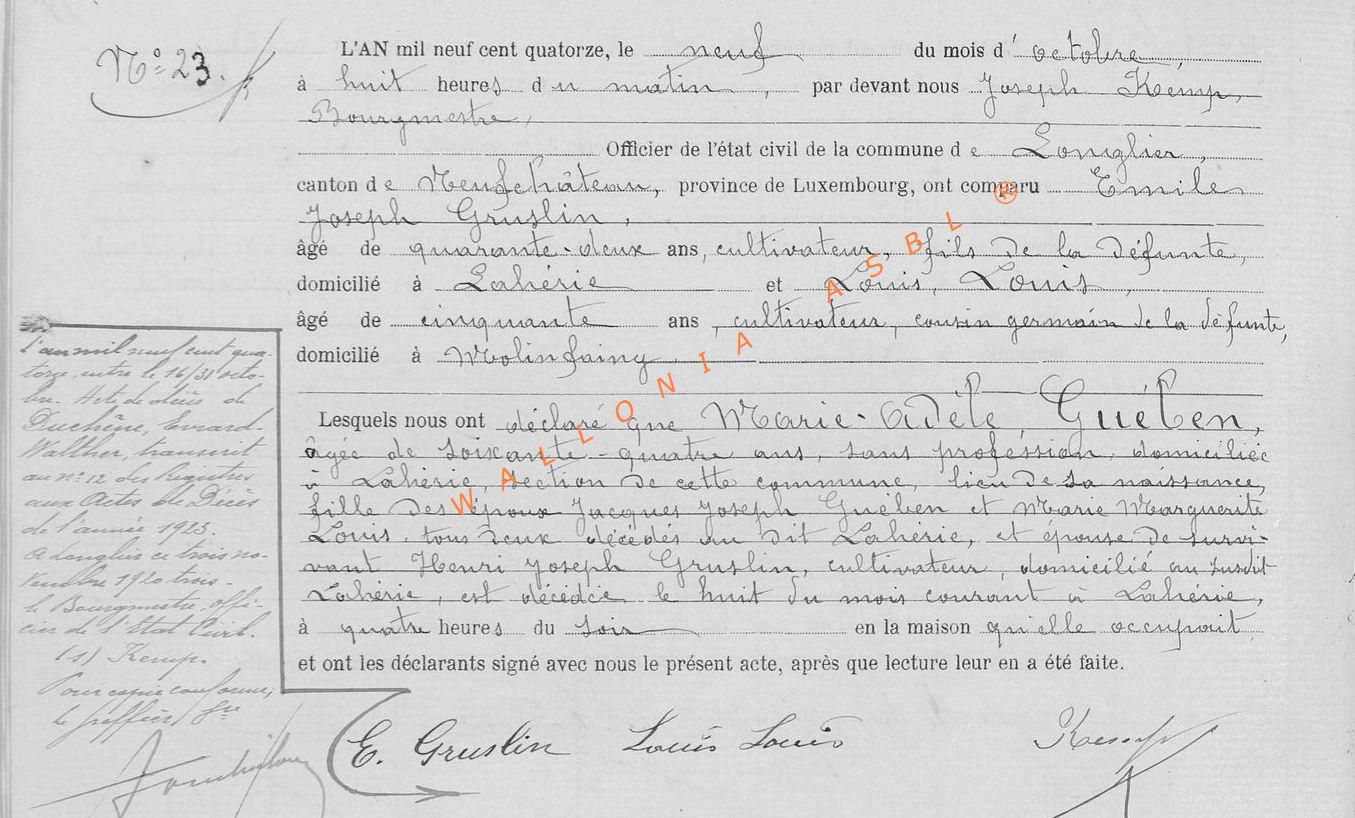 N° 23.
L'AN mil neuf cent quatorze, le neuf du mois d' octobre,
à huit heures du matin, par devant nous Joseph Kemp,
Bourgmestre,
Officier de l'état civil de la commune de Longlier,
canton de Neufchâteau, province de Luxembourg, ont comparu Emile
Joseph Gruslin,
âgé de quarante-deux ans, cultivateur, fils de la défunte,
domicilié à Lahérie et Louis, Louis,
âgé de cinquante ans, cultivateur, cousin germain de la défunte,
domicilié à Molinfaing
Lesquels nous ont déclaré que Marie-Adèle Guében,
âgée de soixante-quatre ans, sans profession, domiciliée
à Lahérie, section de cette commune, lieu de sa naissance,
fille des époux Jacques Joseph Guében et Marie Marguerite
Louis, tous deux décédés au dit Lahérie, et épouse de survi-
vant Henri Joseph Gruslin, cultivateur, domicilié au susdit
Lahérie, est décédée le huit du mois courant à Lahérie,
à quatre heures du soir en la maison qu'elle occupait
et ont les déclarants signé avec nous le présent acte, après que lecture leur en a été faite.
E. Gruslin Louis Louis Kemp
l'an mil neuf cent qua-
torze, entre le 16/31 octo-
bre. Acte de décès de
Duchêne, Evrard-
Walther, transcrit
au n° 12 des Registres
aux Actes de Décès
de l'année 1923.
A Longlier ce trois no-
vembre 1920 trois.
le Bourgmestre, offi-
cier de l'Etat Civil.
(s) Kemp.
Pour copie conforme,
le greffier
WALLONIA ASBL ®